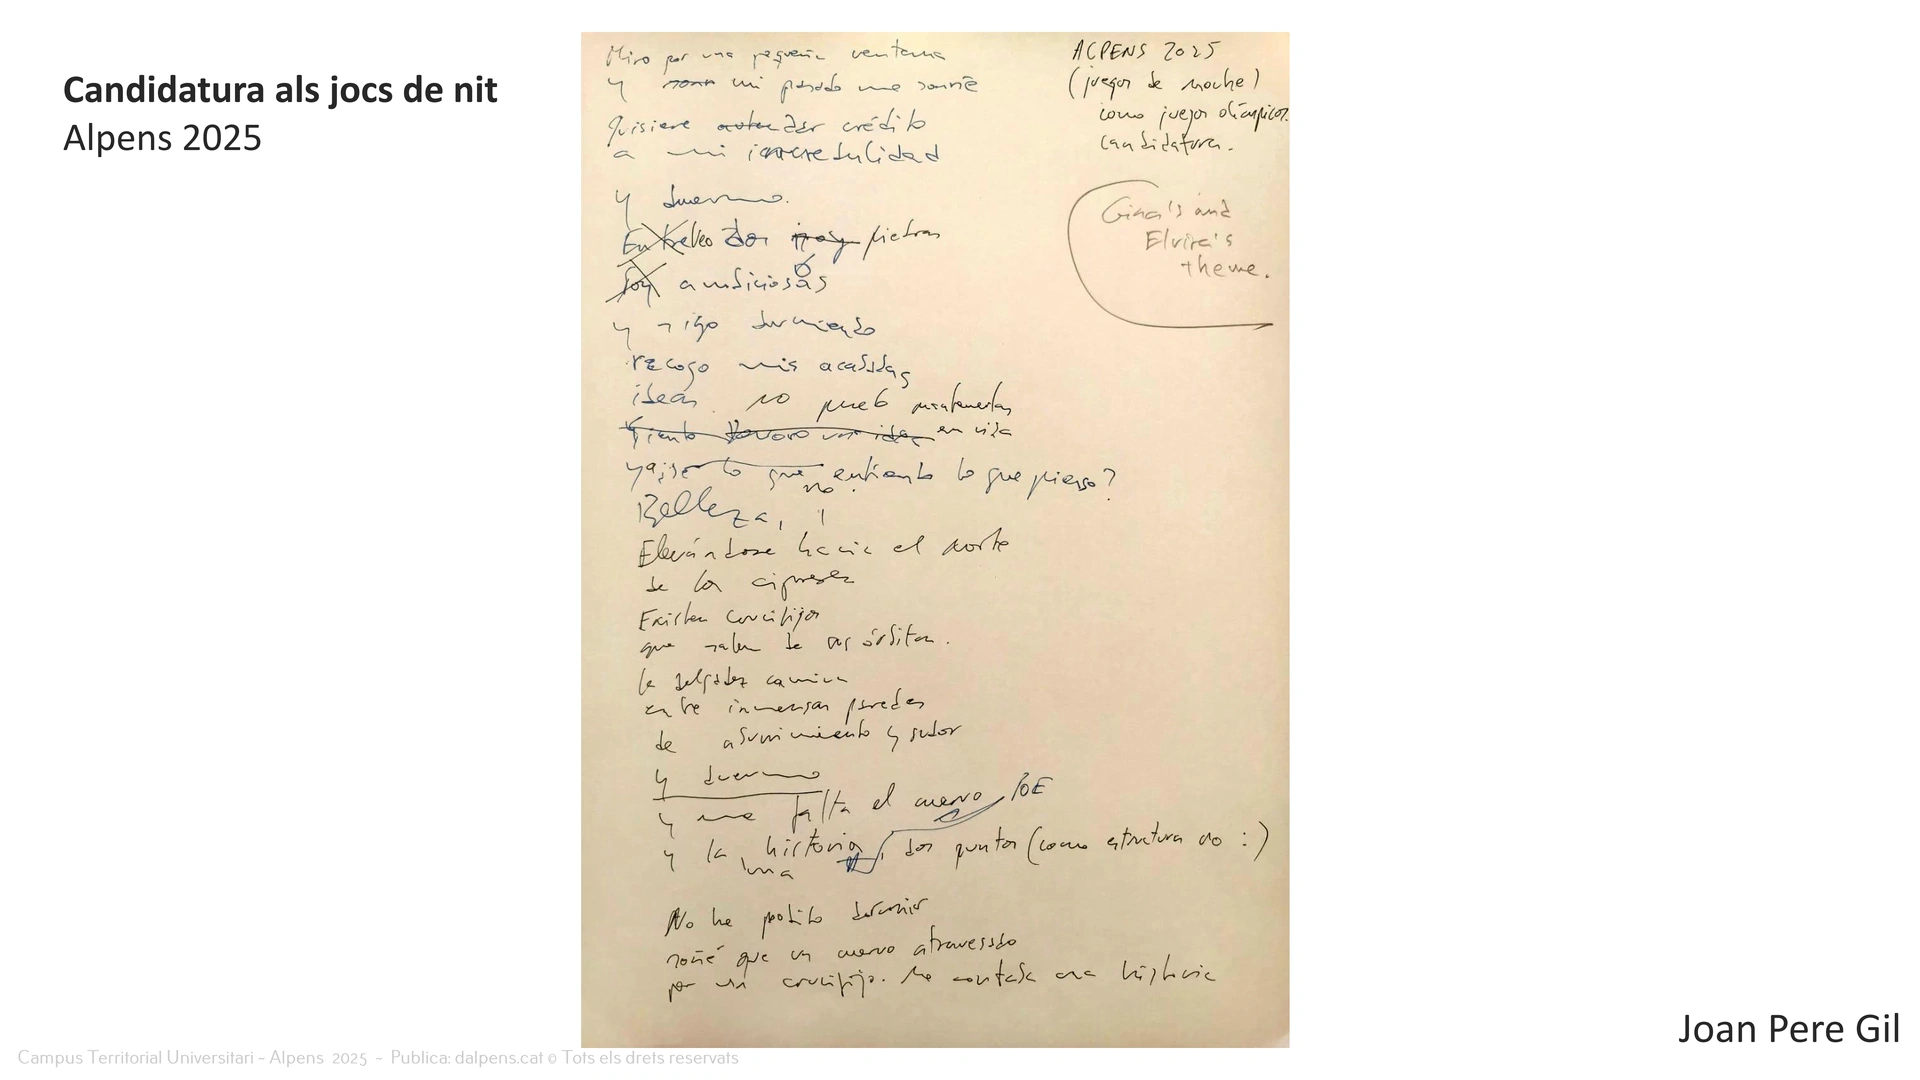 Candidatura als jocs de nit
Alpens 2025
Miro por una pequeña ventana
y mi pasado me sonríe
Quisiera dar crédito
a mi incredulidad
y duermo.
Entreveo dos piedras
Soy ambiciosas
y sigo durmiendo
recogo mis acabadas
ideas. no puedo mantenerlas
Siento en vida
lo que no entiendo lo que pienso?
Belleza,
Elevándose hacia el norte
de los cipreses
Existen crucifijos
que salen de sus órbitas.
la delgadez camina
entre inmensas paredes
de aburrimiento y sudor
y duermo
y me falta el cuervo POE
y la historia, dos puntos (como estructura no :)
una
No he podido dormir
soñé que un cuervo atravesado
por un crucifijo. Me contaba una historia
ALPENS 2025
(juegos de noche)
como juegos olímpicos.
candidatura.
Gina's and
Elvira's
theme.
Joan Pere Gil
Campus Territorial Universitari - Alpens 2025 - Publica: dalpens.cat © Tots els drets reservats